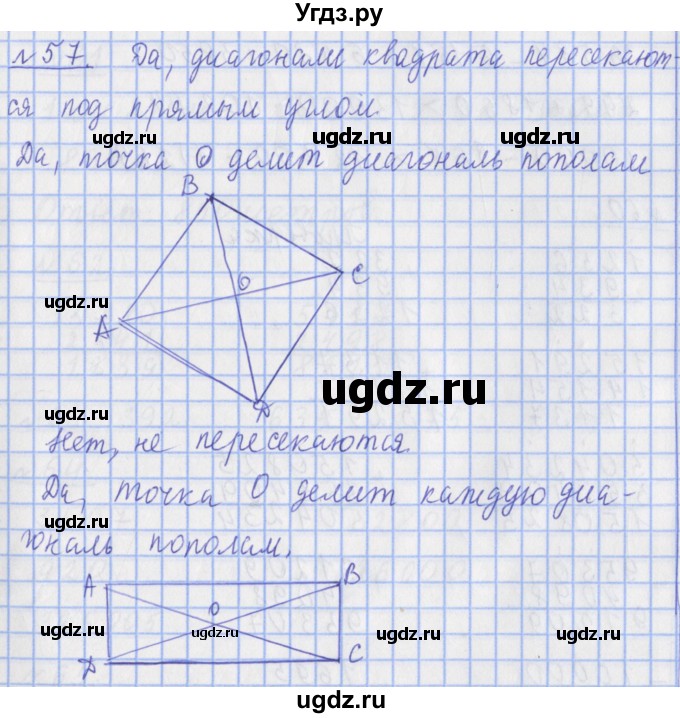 Угдз.ру
№57. Да, диагонали квадрата пересекают-
ся под прямым углом.
ugdz.ru ugdz.ru
Да, точка О делит диагональ пополам
B
O
C
ugdz.ru
A
ugdz.ru
D
ugdz.ru
Нет, не пересекаются.
Да, точка О делит каждую диа-
ugdz.ru
гональ пополам.
A B
O
ugdz.ru ugdz.ru ugdz.ru ugdz.ru
D C
ugdz.ru